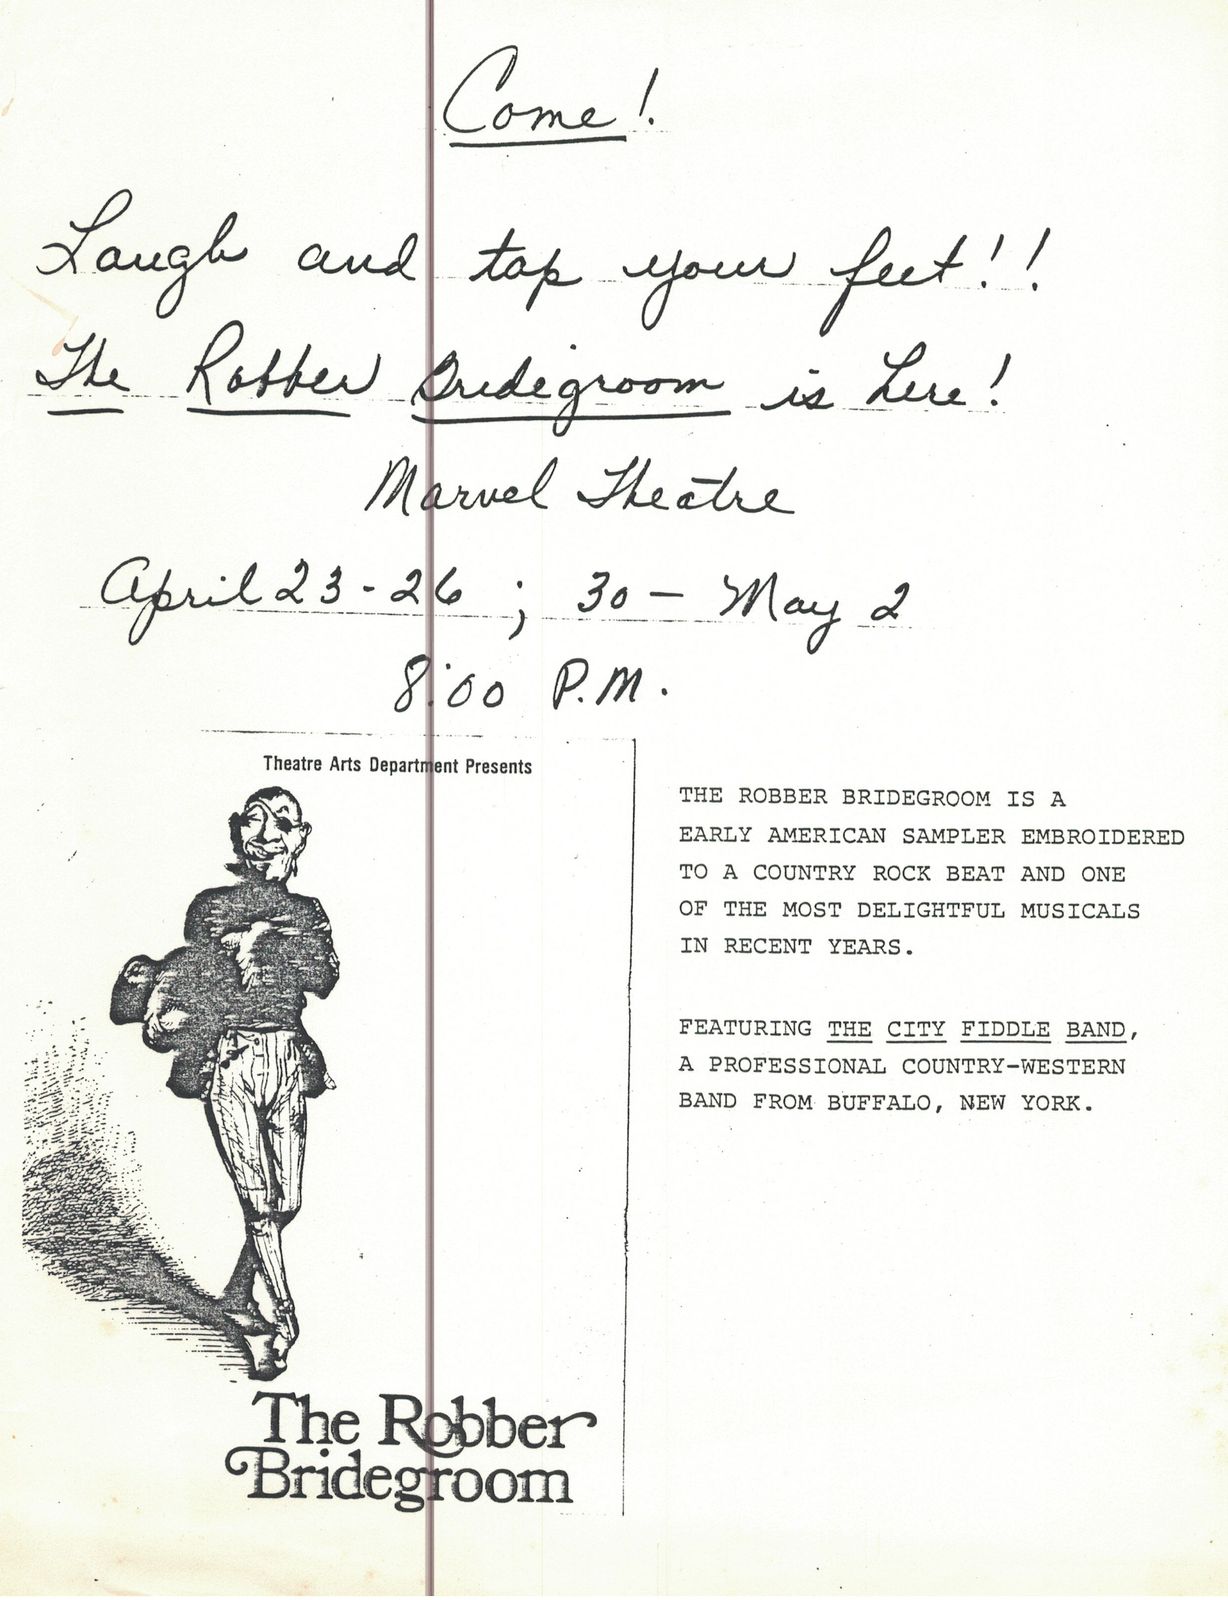 Come!
Laugh and tap your feet!!
The Robber Bridegroom is here!
Marvel Theatre
April 23-26; 30 - May 2
8:00 P.M.
Theatre Arts Department Presents
The Robber
Bridegroom
THE ROBBER BRIDEGROOM IS A
EARLY AMERICAN SAMPLER EMBROIDERED
TO A COUNTRY ROCK BEAT AND ONE
OF THE MOST DELIGHTFUL MUSICALS
IN RECENT YEARS.
FEATURING THE CITY FIDDLE BAND,
A PROFESSIONAL COUNTRY-WESTERN
BAND FROM BUFFALO, NEW YORK.